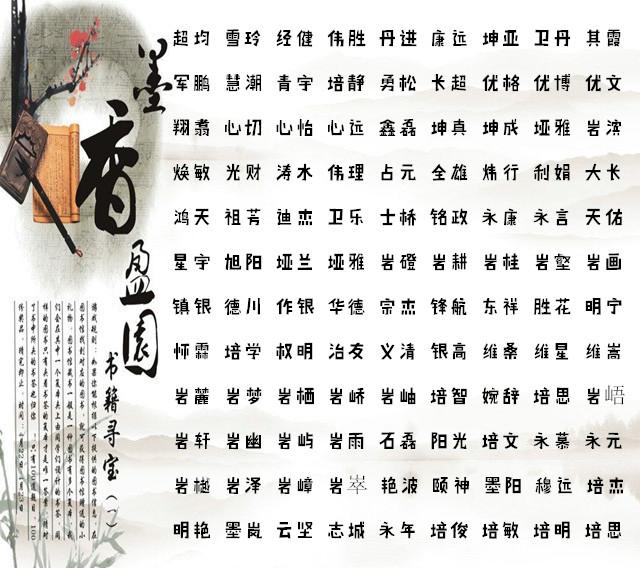 墨香盈园
书籍寻宝（一）
超均 雪玲 经健 伟胜 丹进 康远 坤亚 卫丹 其霞
军鹏 慧潮 青宇 培静 勇松 长超 优格 优博 优文
翔翥 心切 心怡 心远 鑫磊 坤真 坤成 垭雅 岩滨
焕敏 光财 涛水 伟理 占元 全雄 炜行 利娟 大长
鸿天 祖芳 迪杰 卫乐 士桥 铭政 永康 永言 天佑
星宇 旭阳 垭兰 垭雅 岩磴 岩耕 岩桂 岩壑 岩画
镇银 德川 作银 华德 宗杰 锋航 东祥 胜花 明宁
怀霖 培学 权明 治友 义清 银高 维桑 维星 维嵩
岩麓 岩梦 岩栖 岩峤 岩岫 培智 婉辞 培思 岩峿
岩轩 岩幽 岩屿 岩雨 石磊 阳光 培文 永慕 永元
岩樾 岩泽 岩嶂 岩崒 艳波 颐神 墨阳 穆远 培杰
明艳 墨岚 云坚 志城 永年 培俊 培敏 培明 培思